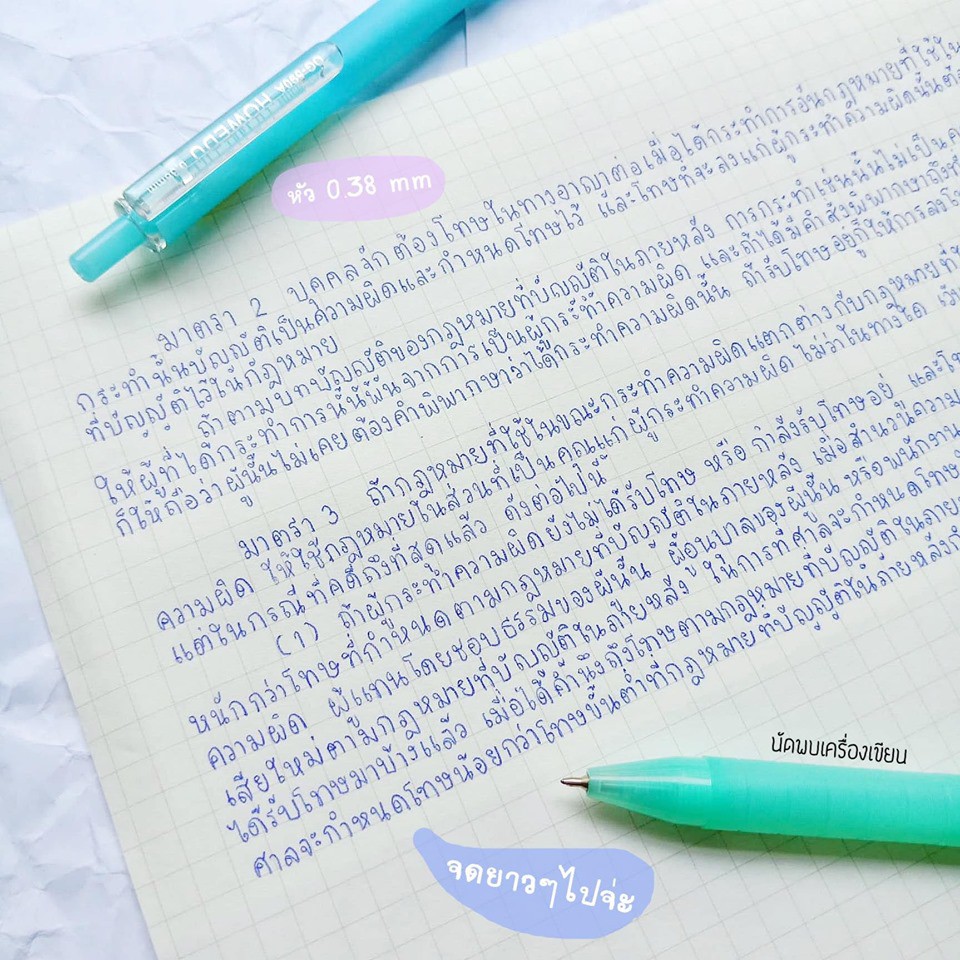 GG-590A HUWEDU 0.5
หัว 0.38 mm
มาตรา 2 บุคคลจักต้องโทษในทางอาญาต่อเมื่อได้กระทำการอันกฎหมายที่ใช้ใน
กระทำนั้นบัญญัติเป็นความผิดและกำหนดโทษไว้ และโทษที่จะลงแก่ผู้กระทำความผิดนั้นต้อ
ที่บัญญัติไว้ในกฎหมาย
ถ้าตามบทบัญญัติของกฎหมายที่บัญญัติในภายหลัง การกระทำเช่นนั้นไม่เป็นค
ให้ผู้ที่ได้กระทำการนั้นพ้นจากการเป็นผู้กระทำความผิด และถ้าได้มีคำสั่งพิพากษาถึงที่
ก็ให้ถือว่าผู้นั้นไม่เคยต้องคำพิพากษาว่าได้กระทำความผิดนั้น ถ้ารับโทษอยู่ก็ให้การลงโท
มาตรา 3 ถ้ากฎหมายที่ใช้ในขณะกระทำความผิดแตกต่างกับกฎหมายที่ใ
ความผิด ให้ใช้กฎหมายในส่วนที่เป็นคุณแก่ผู้กระทำความผิด ไม่ว่าในทางใด เว้น
แต่ในกรณีที่คดีถึงที่สุดแล้ว ดังต่อไปนี้
(1) ถ้าผู้กระทำความผิดยังไม่ได้รับโทษ หรือกำลังรับโทษอยู่ และโท
หนักกว่าโทษที่กำหนดตามกฎหมายที่บัญญัติในภายหลัง เมื่อสำนวนความ
ความผิด ผู้แทนโดยชอบธรรมของผู้นั้น ผู้อนุบาลของผู้นั้น หรือพนักงาน
เสียใหม่ตามกฎหมายที่บัญญัติในภายหลัง ในการที่ศาลจะกำหนดโทษใ
ได้รับโทษมาบ้างแล้ว เมื่อได้คำนึงถึงโทษตามกฎหมายที่บัญญัติในภาย
ศาลจะกำหนดโทษน้อยกว่าโทษขั้นต่ำที่กฎหมายที่บัญญัติในภายหลังกำ
นัดพบเครื่องเขียน
จดยาวๆไปจ่ะ